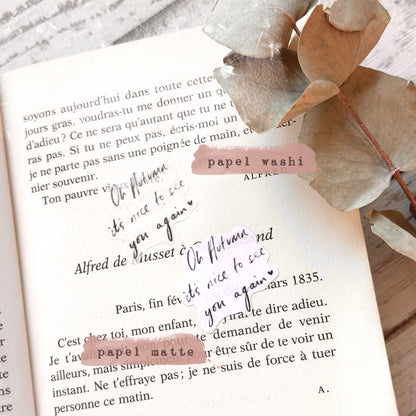 soyons aujourd'hui dans toute cette
jours gras, voudras-tu me donner un q
d'adieu? Ce ne sera qu'autant que tu ne
ras pas. Si tu ne peux pas, écris-moi un
je ne parte pas sans une poignée de main, et
nier souvenir.
Ton pauvre
ALFRED
papel washi
Oh Autumn
it's nice to see
you again
Alfred de Musset à
Oh Autumn
it's nice to see
you again
Paris, fin
mars 1835.
C'est chez toi, mon enfant,
dire adieu.
Je t'av
de demander de venir
papel matte
ailleurs, mais simplement
être sûr de te voir un
instant. Ne t'effraye pas; je ne suis de force à tuer
personne ce matin.
A.